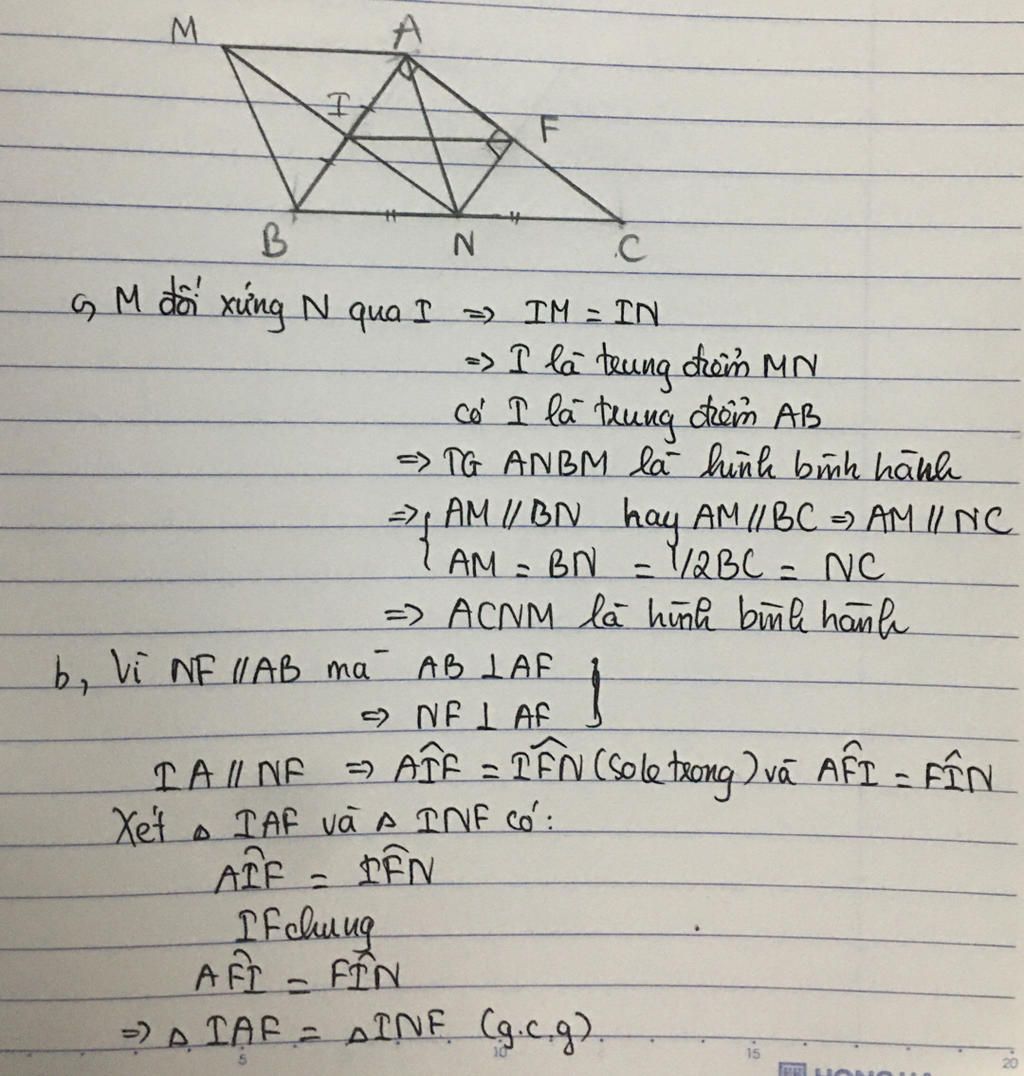 M
A
I
F
B
N
C
a, M đối xứng N qua I => IM = IN
=> I là trung điểm MN
có I là trung điểm AB
=> TG ANBM là hình bình hành
=> { AM // BN hay AM // BC => AM // NC
AM = BN = 1/2BC = NC
=> ACNM là hình bình hành
b, Vì NF // AB mà AB ⊥ AF }
=> NF ⊥ AF
IA // NF => AÎF = IF̂N (Sole trong) và AF̂I = FÎN
Xét ▵ IAF và ▵ INF có:
AÎF = IF̂N
IF chung
AF̂I = FÎN
=> ▵ IAF = ▵ INF (g.c.g)
5 10 15 20